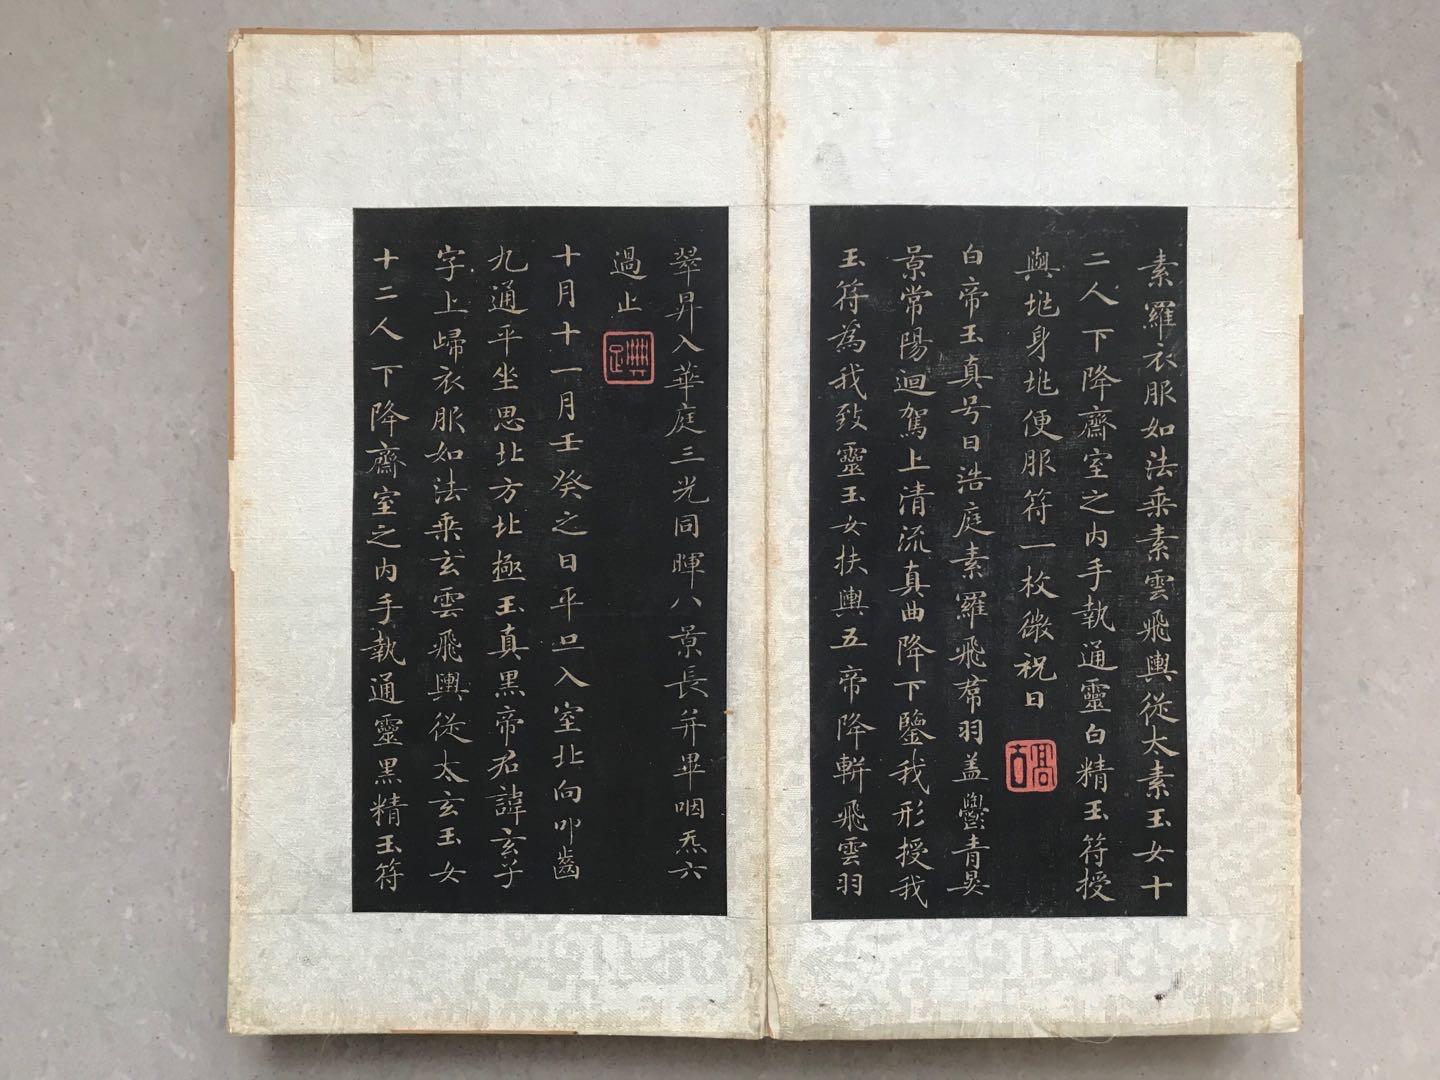 素羅衣服如法乘素雲飛輿從太素玉女十
二人下降齋室之内手執通靈白精玉符授
與地身地便服符一枚微祝曰
白帝玉真号曰浩庭素羅飛帬羽盖鬱青晏
景常陽迴駕上清流真曲降下鑒我形授我
玉符為我致靈玉女扶輿五帝降軿飛雲羽
翠昇入華庭三光同暉八景長并畢咽炁六
過止
十月十一月壬癸之日平旦入室北向叩齒
九通平坐思北方北極玉真黑帝君諱玄子
字上歸衣服如法乘玄雲飛輿從太玄玉女
十二人下降齋室之内手執通靈黑精玉符